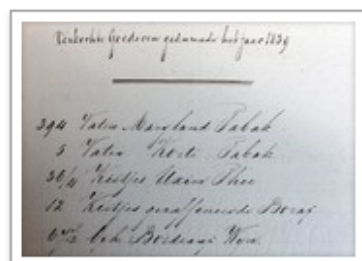 Verkochte Goederen gedurende het jaar 1839
394 Vaten Maryland Tabak
5 Vaten Korte Tabak
36/4 Kistjes Thee
12 Kistjes geraffineerde Borax
Bordeaux Wijn